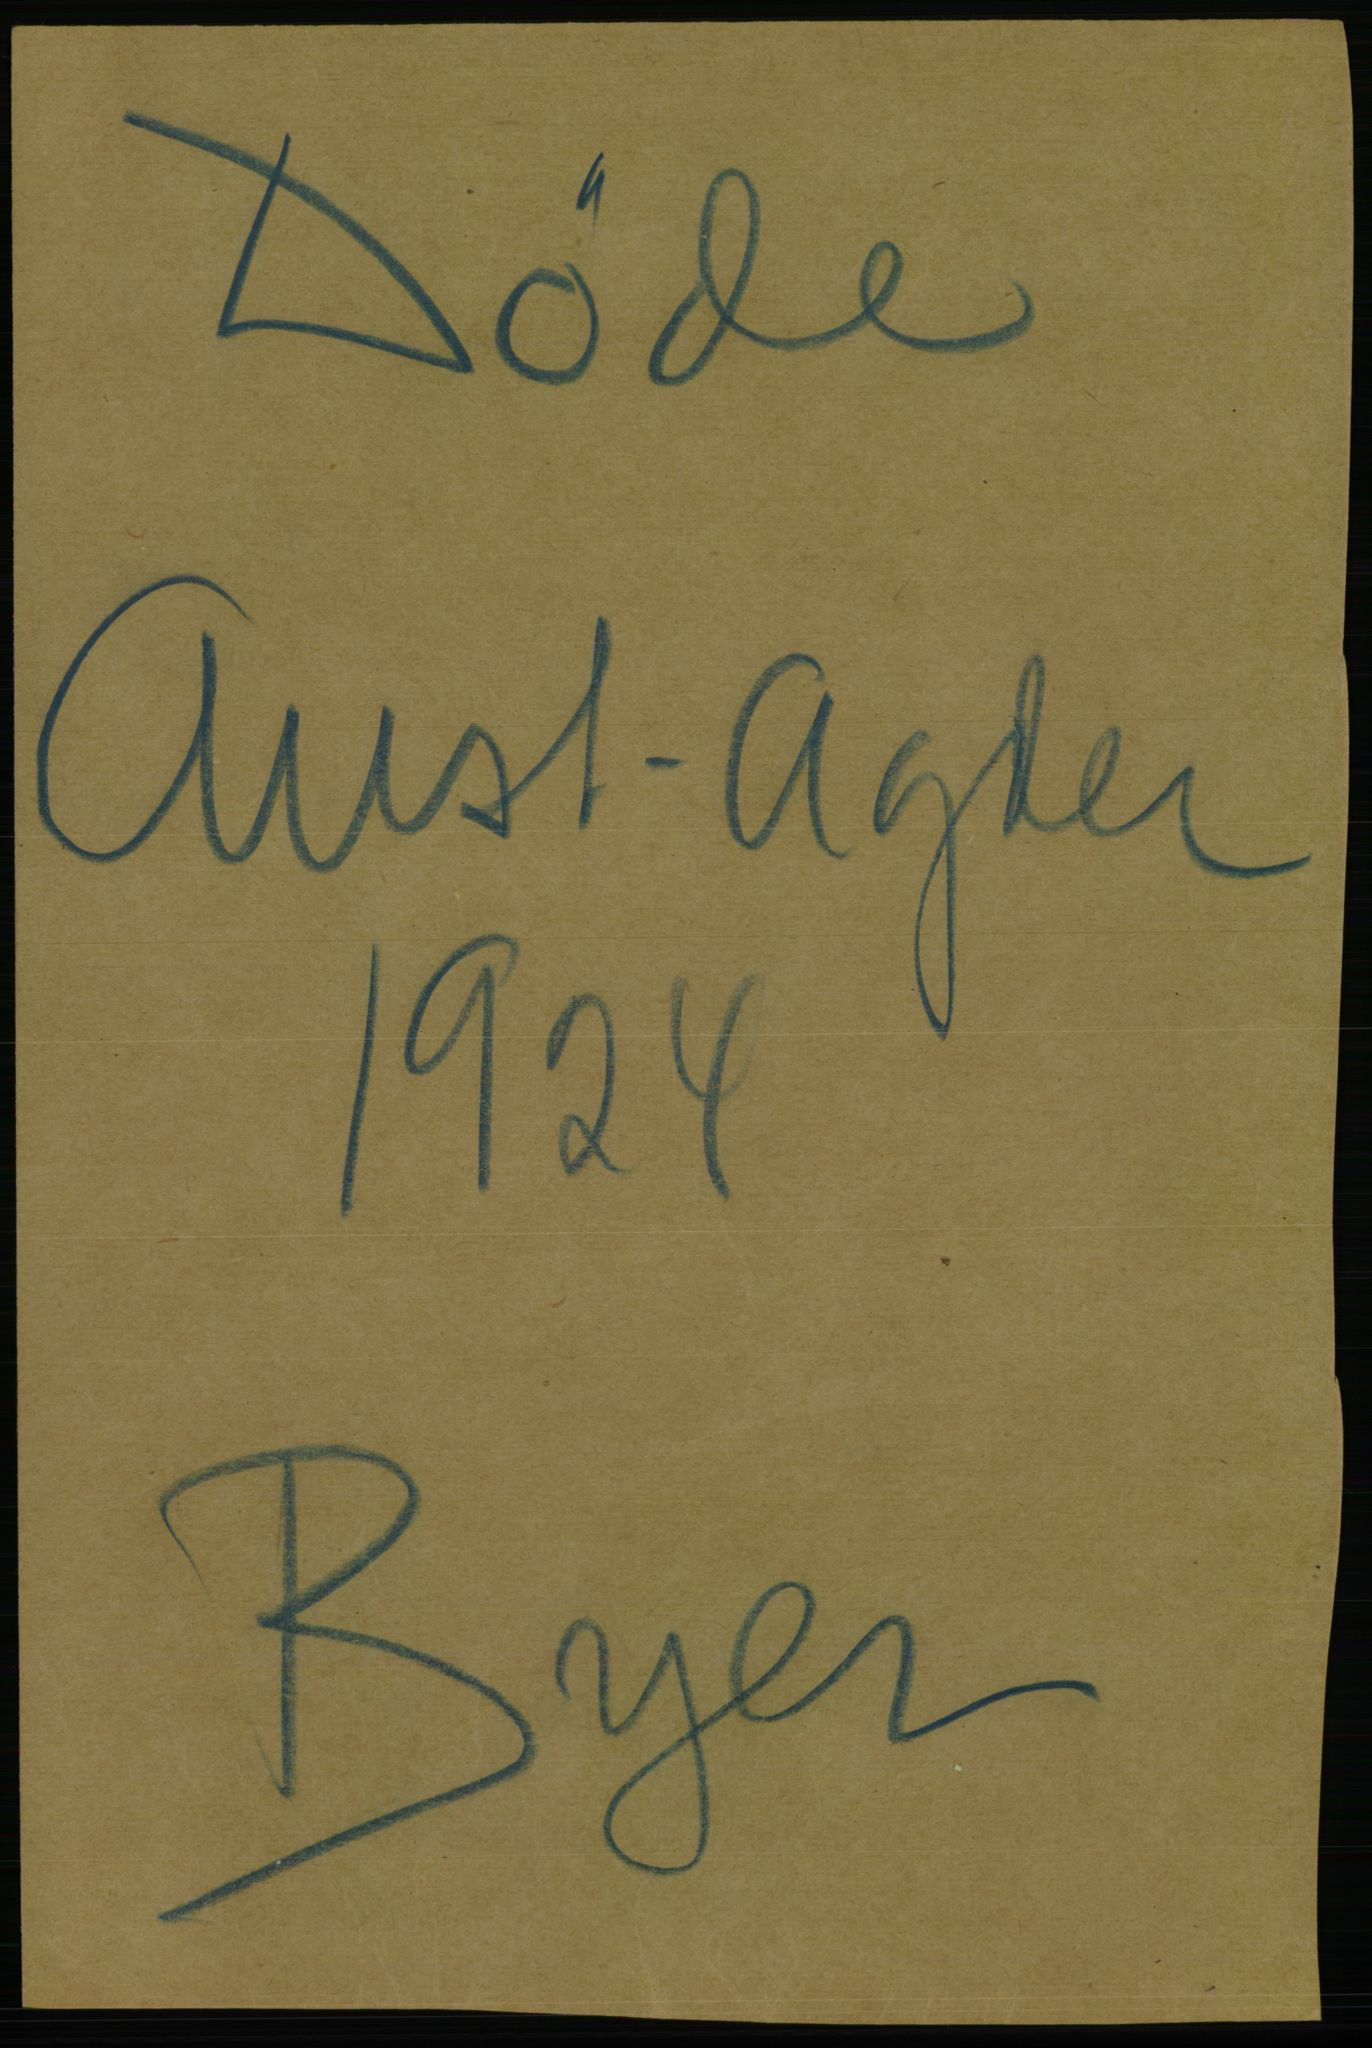 Döde
Aust-Agder
1924
Byer